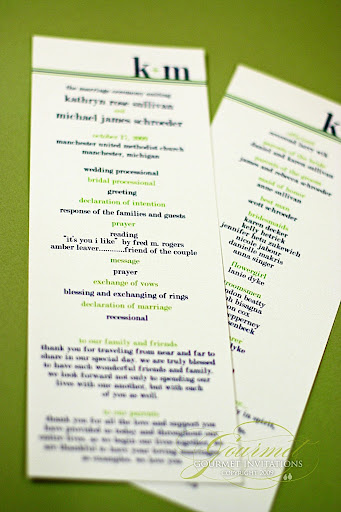 k•m
the marriage ceremony uniting
kathryn rose sullivan
and
michael james schroeder
october 17, 2009
manchester united methodist church
manchester, michigan
wedding processional
bridal processional
greeting
declaration of intention
response of the families and guests
prayer
reading
"it's you i like" by fred m. rogers
amber leaver..............friend of the couple
message
prayer
exchange of vows
blessing and exchanging of rings
declaration of marriage
recessional
to our family and friends
thank you for traveling from near and far to
share in our special day. we are truly blessed
to have such wonderful friends and family.
we look forward not only to spending our
lives with one another, but with each
of you as well.
to our parents
thank you for all the love and support you
have provided us today and throughout our
entire lives. as we begin our lives together, we
are thankful to have your loving marriages
as examples. we love you.
k
officiant
parents of the bride
parents of the groom
james and rebecca schroeder
maid of honor
anne sullivan
best man
scott schroeder
bridesmaids
karen decker
kelly hetrick
jennifer beth zukowich
nicole takeuchi
danielle makris
anna singer
flowergirl
janie dyke
roomsmen
landon beatty
oh bisagna
on cox
epperney
senbeck
er
dyke
in spirit,
Gourmet
GOURMET INVITATIONS
COPYRIGHT 2009